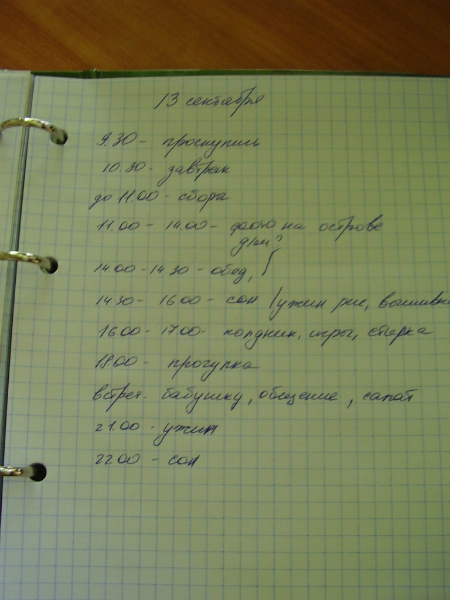 13 сентября
9.30 - проснулись
10.30 - завтрак
до 11.00 - сборы
11.00 - 14.00 - фото на острове
14.00 - 14.30 - обед,
14.30 - 16.00 - сон (ужин рис, вышивка
16.00 - 17.00 - полдник, игры, стирка
18.00 - прогулка
встрет. бабушку, общение, салат
21.00 - ужин
22.00 - сон